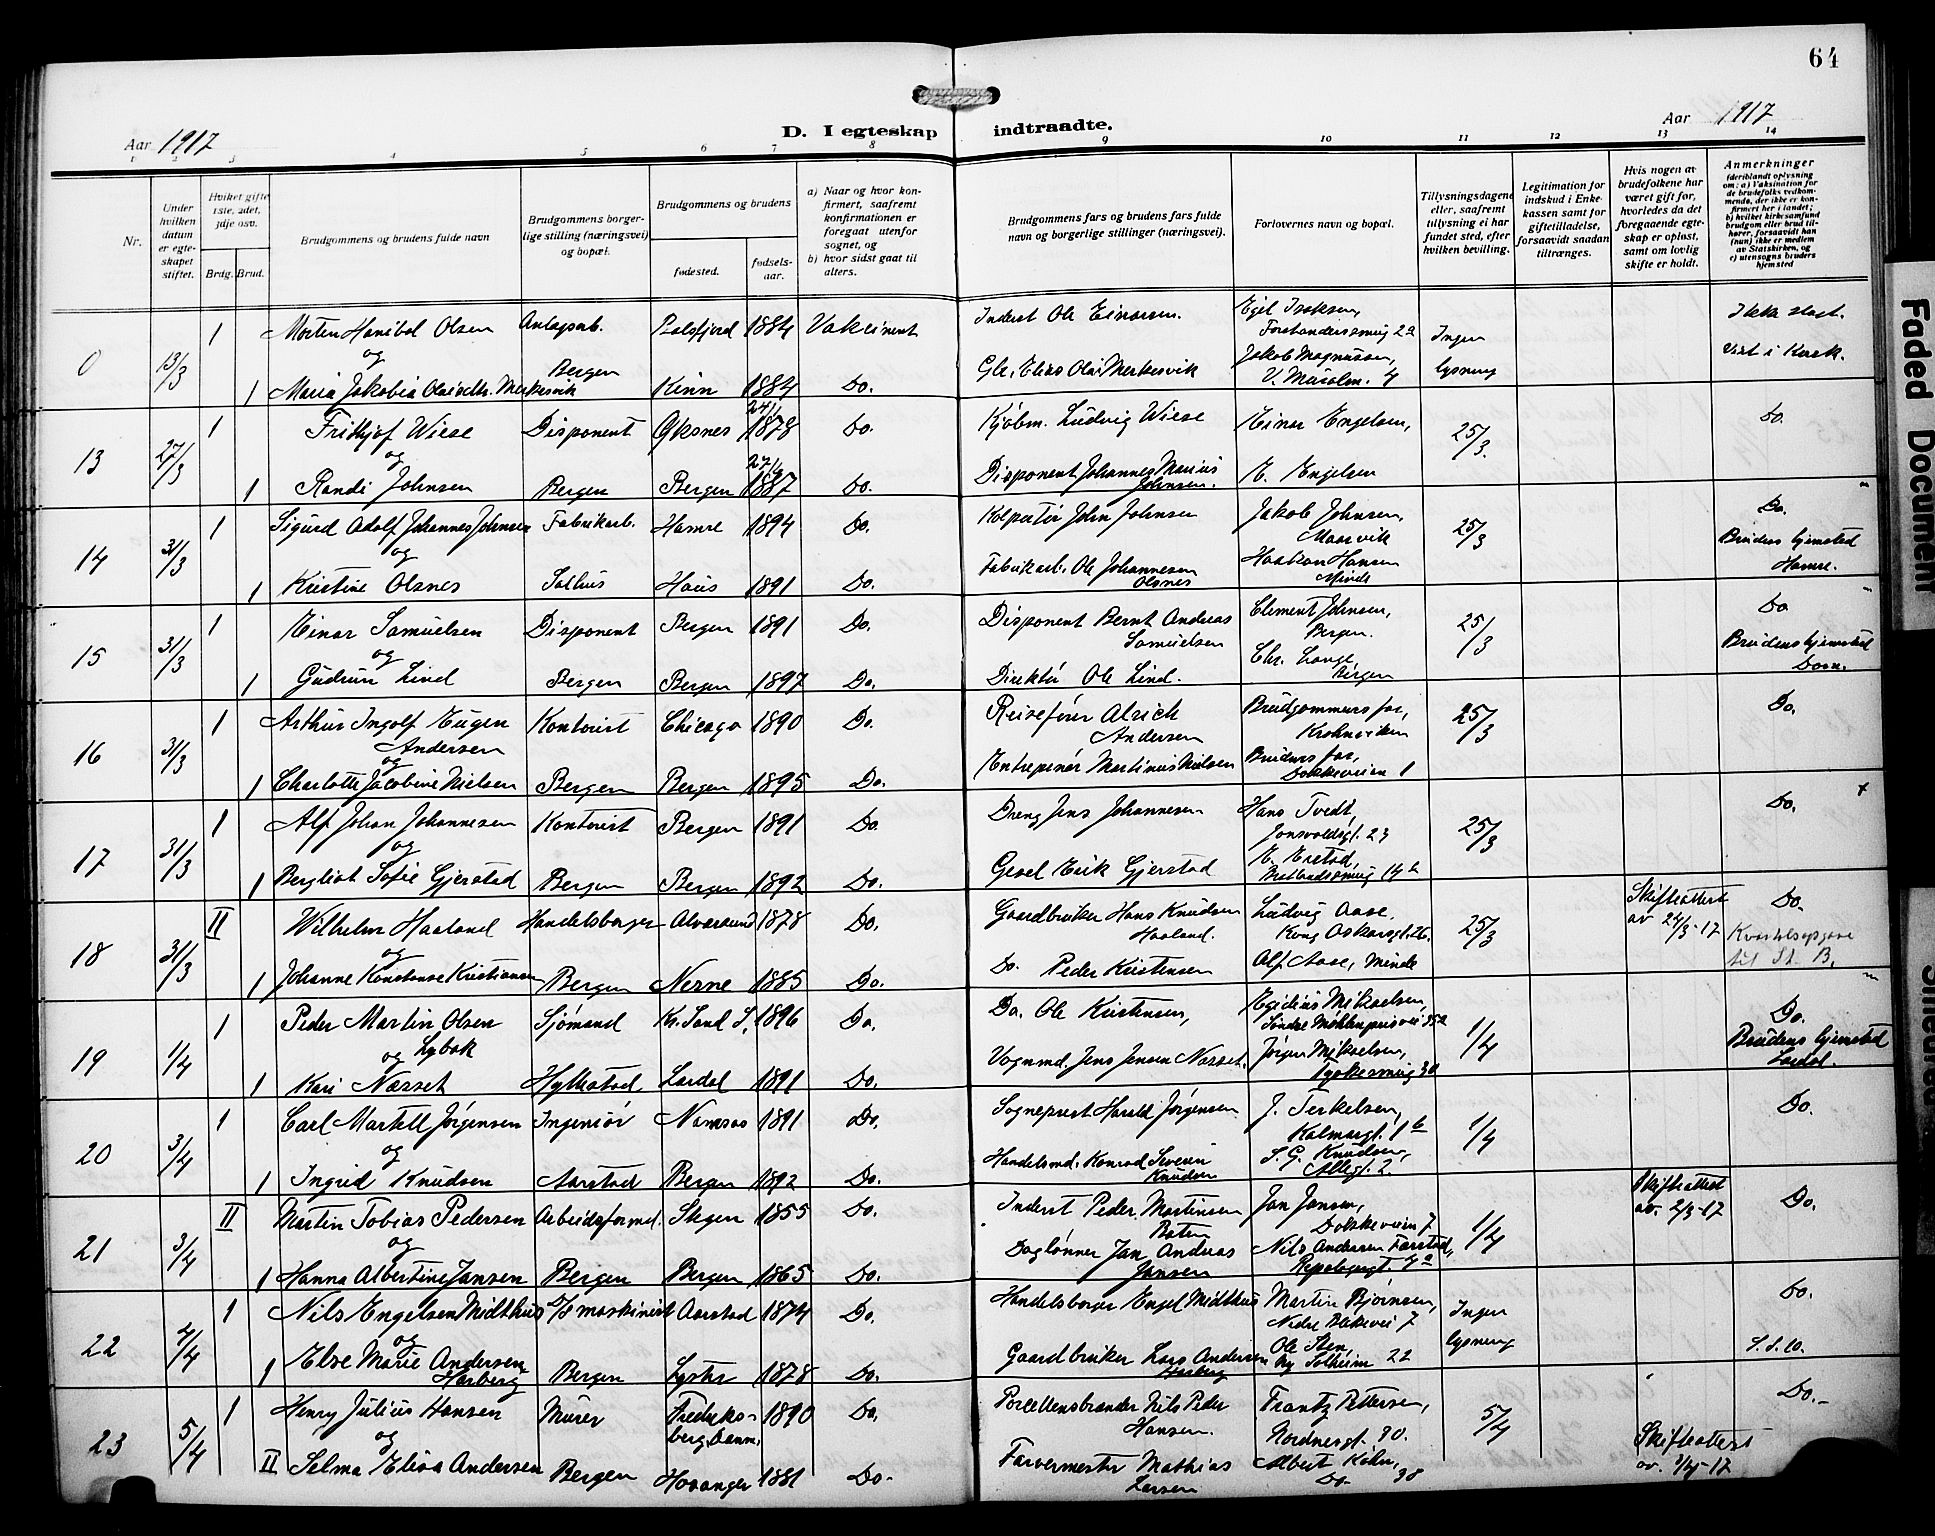 64
Aar 1917
D. I egteskap indtraadte.
Aar 1917
1 2 3 4 5 6 7 8 9 10 11 12 13 14
Nr.
Under hvilken datum er egteskapet stiftet.
Hvilket gifte 1ste, 2det, 3dje osv.
Brdg. Brud.
Brudgommens og brudens fulde navn
Brudgommens borgerlige stilling (næringsvei) og bopæl.
Brudgommens og brudens
fødested.
fødselsaar.
a) Naar og hvor konfirmert, saafremt konfirmationen er foregaat utenfor sognet, og
b) hvor sidst gaat til alters.
Brudgommens fars og brudens fars fulde navn og borgerlige stillinger (næringsvei).
Forlovernes navn og bopæl.
Tillysningsdagene eller, saafremt tillysning ei har fundet sted, efter hvilken bevilling.
Legitimation for indskud i Enkekassen samt for giftetilladelse, forsaavidt saadan tiltrænges.
Hvis nogen av brudefolkene har været gift før, hvorledes da det foregaaende egteskap er opløst, samt om lovlig skifte er holdt.
Anmerkninger
(deriblandt oplysning om: a) Vaksination for de brudefolks vedkommende, der ikke er konfirmert her i landet; b) hvilket kirkesamfund brudgom eller brud tilhører, forsaavidt han (hun) ikke er medlem av Statskirken, og c) utensogns bruders hjemsted
0 13/3 1 Morten Hanibal Olsen Anlagsarb. Balsfjord 1884 Vaksinert Inderst Ole Einarsen. Egil Isaksen, Ingen lysning
og Bergen Jakob Magnussen,
1 Maria Jakobia Olaisdtr. Merkesvik Kinn 1884 Do. Gbr. Elias Olai Merkesvik Viet i Kirk.
13 27/3 1 Fritjof Wiese Disponent Øksnes 1878 Do. Kjøbm. Ludvig Wiese Einar Engelsen, 25/3. Do.
og
1 Randi Johnsen Bergen Bergen 1887 Do. Disponent Johannes Marius Johnsen. E. Engelsen
14 31/3 1 Sigurd Adolf Johannes Johnsen Fabrikarb. Hamre 1894 Do. Kolportør John Johnsen Jakob Johnsen, 25/3 Do.
og Brudens hjemsted Hamre.
1 Kristine Olsnes Salhus Haus 1891 Do. Fabrikarb. Ole Johannesen Olsnes Haakon Hansen Minde
15 31/3 1 Einar Samuelsen Disponent Bergen 1891 Do. Disponent Bernt Andreas Samuelsen Clement Johnsen, Bergen. 25/3 Do
og Brudens hjemsted
1 Gudrun Lind Bergen Bergen 1897 Do. Direktør Ole Lind. Chr. Lange, Bergen
16 31/3 1 Arthur Ingolf Eugen Andersen Kontorist Chicago 1890 Do. Reisefører Alrich Andersen Brudgommens far, Krohnviken 25/3 Do.
og
1 Charlotte Jacobine Nielsen Bergen Bergen 1895 Do. Entreprenør Martinus Nielsen Brudens far, Dokkeveien 1
17 31/3 1 Alf Johan Johannesen Kontorist Bergen 1891 Do. Dreng Jens Johannesen Hans Tvedt, Jonsvoldsgt. 23 25/3 Do. +
og
1 Bergliot Sofie Gjerstad Bergen Bergen 1892 Do. Gesel Erik Gjerstad
18 31/3 II Wilhelm Haaland Handelsborger Alversund 1878 Do. Gaardbruker Hans Knudsen Haaland. Ludvig Aase, Kong Oskarsgt. 26. 25/3 Skifteattest av 24/3-17 Do.
og
1 Johanne Konstanse Kristiansen Bergen Nesne 1885 Do. Do. Peder Kristensen Alf Aase, Minde Kvartalsopgave til St. B.
19 1/4 1 Peder Martin Olsen Lybak Sjømand Kr. Sand S. 1896 Do. Do. Ole Kristensen, Egidius Mikaelsen, Søndre Møhlenprisvei 35a 1/4 Do.
og Brudens hjemsted
1 Kari Næsset Hyllestad Lærdal 1891 Do. Vognmd. Jens Jensen Næsset. Jørgen Mikaelsen, Lærdal.
20 3/4 1 Carl Martell Jørgensen Ingeniør Namsos 1891 Do. Sogneprest Harald Jørgensen J. Terkelsen, Kalmargt. 1b 1/4 Do.
og
1 Ingrid Knudsen Aarstad Bergen 1892 Do. Handelsmd. Konrad Severin Knudsen S. G. Knudsen, Allegt. 2.
21 3/4 II Martin Tobias Pedersen Arbeidsformd. Stegen 1855 Do. Inderst Peder Martinsen Jan Jansen, Dokkeveien 7 1/4 Skifteattest av. 2/3-17 Do.
og
1 Hanna Albertine Jansen Bergen Bergen 1865 Do. Daglønner Jan Andreas Jansen Nils Andersen Farstad,
22 4/4 1 Nils Engelsen Midthus D/S maskinist Aarstad 1874 Do. Handelsborger Engel Midthus Martin Bjørnsen, Ingen lysning Do.
og
1 Else Marie Andersen Harberg Bergen Lyster 1878 Do. Gaardbruker Lars Andersen Harberg Ole Sten, Ny Solheim 22
23 5/4 1 Henry Julius Hansen Murer Frederiksberg, Danm. 1890 Do. Porcellensbrænder Nils Peder Hansen. Frantz Pettersen, Nordnesgt. 30. 5/4 Do.
og
II Selma Elisa Andersen Bergen Hosanger 1881 Do. Farvermester Mathias Larsen Albert Kahn, Do. 38 Skifteattest av. 3/4-17
Faded Document